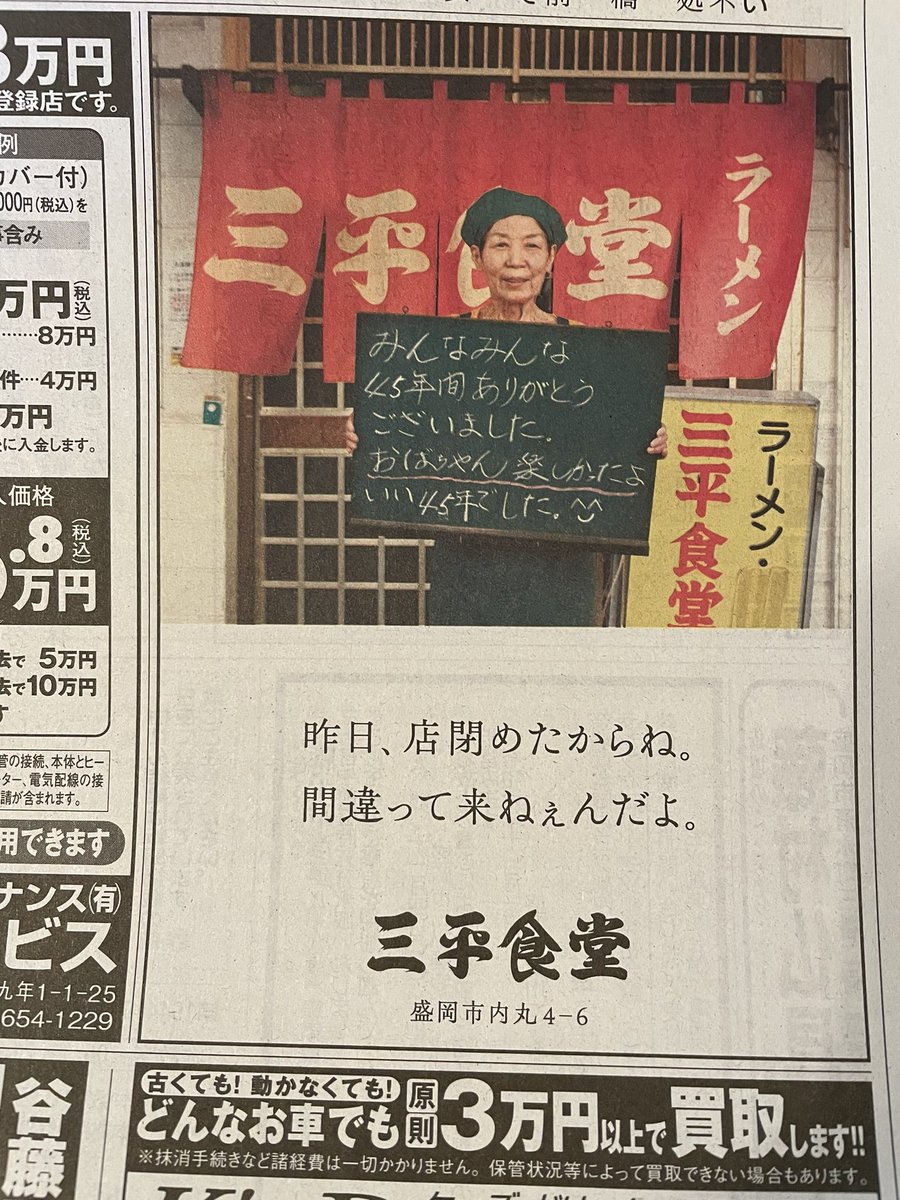 三平食堂
ラーメン
みんなみんな
45年間ありがとう
ございました。
おばちゃん楽しかったよ
いい45年でした。
ラーメン・
三平食堂
昨日、店閉めたからね。
間違って来ねぇんだよ。
三平食堂
盛岡市内丸4−6
万円
登録店です。
例
カバー付)
000円(税込)を
含み
万円(税込)
……8万円
件…4万円
万円
に入金します。
価格
.8(税込)
万円
去で 5万円
去で10万円
す
管の接続、本体とヒー
ター、電気配線の接
請が含まれます。
用できます
ナンス(有)
ビス
九年1-1-25
654-1229
谷藤
古くても! 動かなくても!
どんなお車でも原則3万円以上で買取します!!
※抹消手続きなど諸経費は一切かかりません。保管状況等によって買取できない場合もあります。